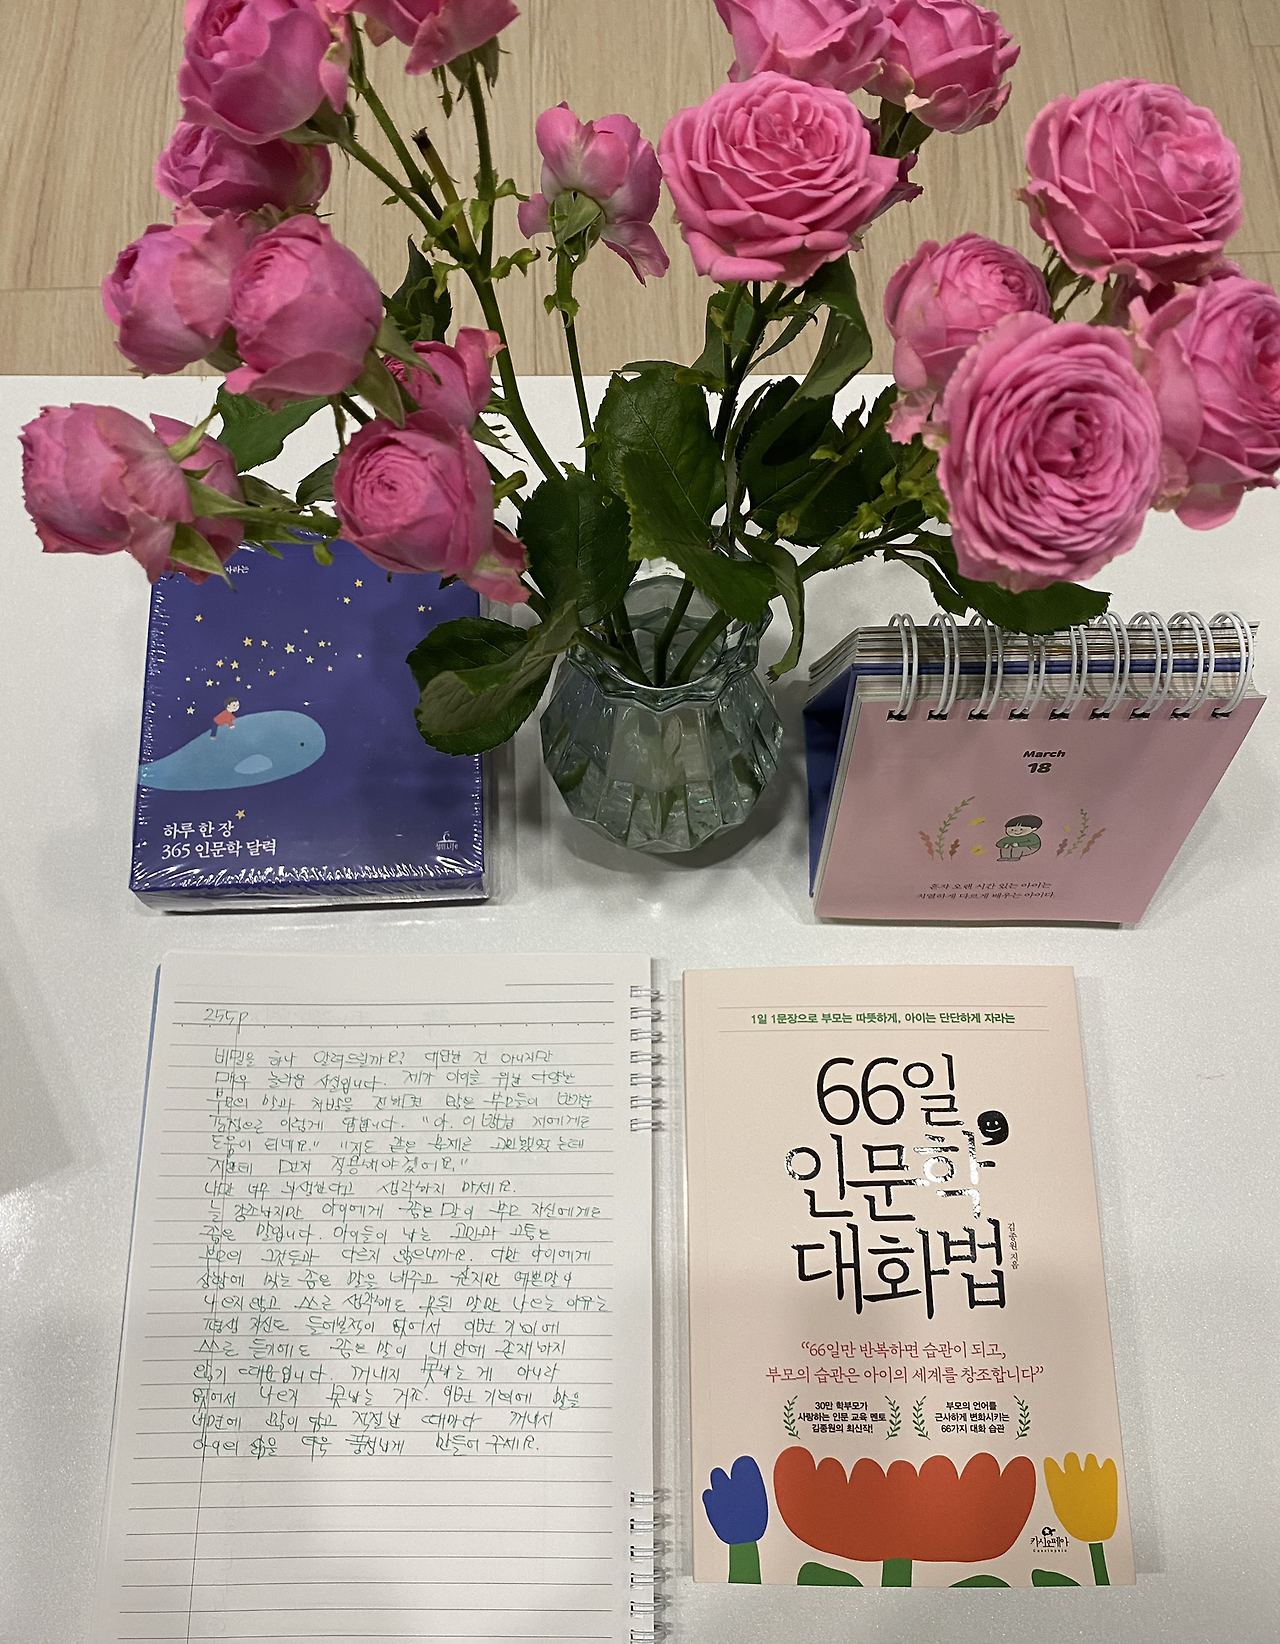 자라는
하루 한 장
365 인문학 달력
March
18
혼자 오랜 시간 있는 아이는
치열하게 다르게 배우는 아이다.
255p
비밀을 하나 알려드릴까요? 대단한 건 아니지만
매우 놀라운 사실입니다. 제가 아이를 위한 다양한
부모의 말과 처방을 전해면 많은 부모들이 반가운
이렇게 답합니다. "아, 이 방법 저에게도
도움이 되네요." "저도 같은 문제로 고민했었는데
저한테 먼저 적용해야겠어요."
나만 너무 생각하지 마세요.
늘 강조하지만 아이에게 좋은 말이 부모 자신에게도
좋은 말입니다. 아이들이 나는 고민과 고통은
부모의 그것들과 다르지 않으니까요. 다만 아이에게
상황에 맞는 좋은 말을 해주고 싶지만 예쁜말이
나오지 않고 스스로 생각해도 못된 말만 나오는 이유는
평생 자신도 들어본적이 없어서 이번 기회에
스스로 듣기에도 좋은 말이 내 안에 존재하지
않기 때문입니다. 꺼내지 못하는 게 아니라
없어서 나오지 못하는 거죠. 이번 기회에 말을
내면에 많이 담고 적절한 때마다 꺼내서
아이의 삶을 더욱 풍성하게 만들어 주세요.
1일 1문장으로 부모는 따뜻하게, 아이는 단단하게 자라는
66일
인문학
대화법
김종원 지음
“66일만 반복하면 습관이 되고,
부모의 습관은 아이의 세계를 창조합니다”
30만 학부모가
사랑하는 인문 교육 멘토
김종원의 최신작!
부모의 언어를
근사하게 변화시키는
66가지 대화 습관
카시오페아
Cassiopeia